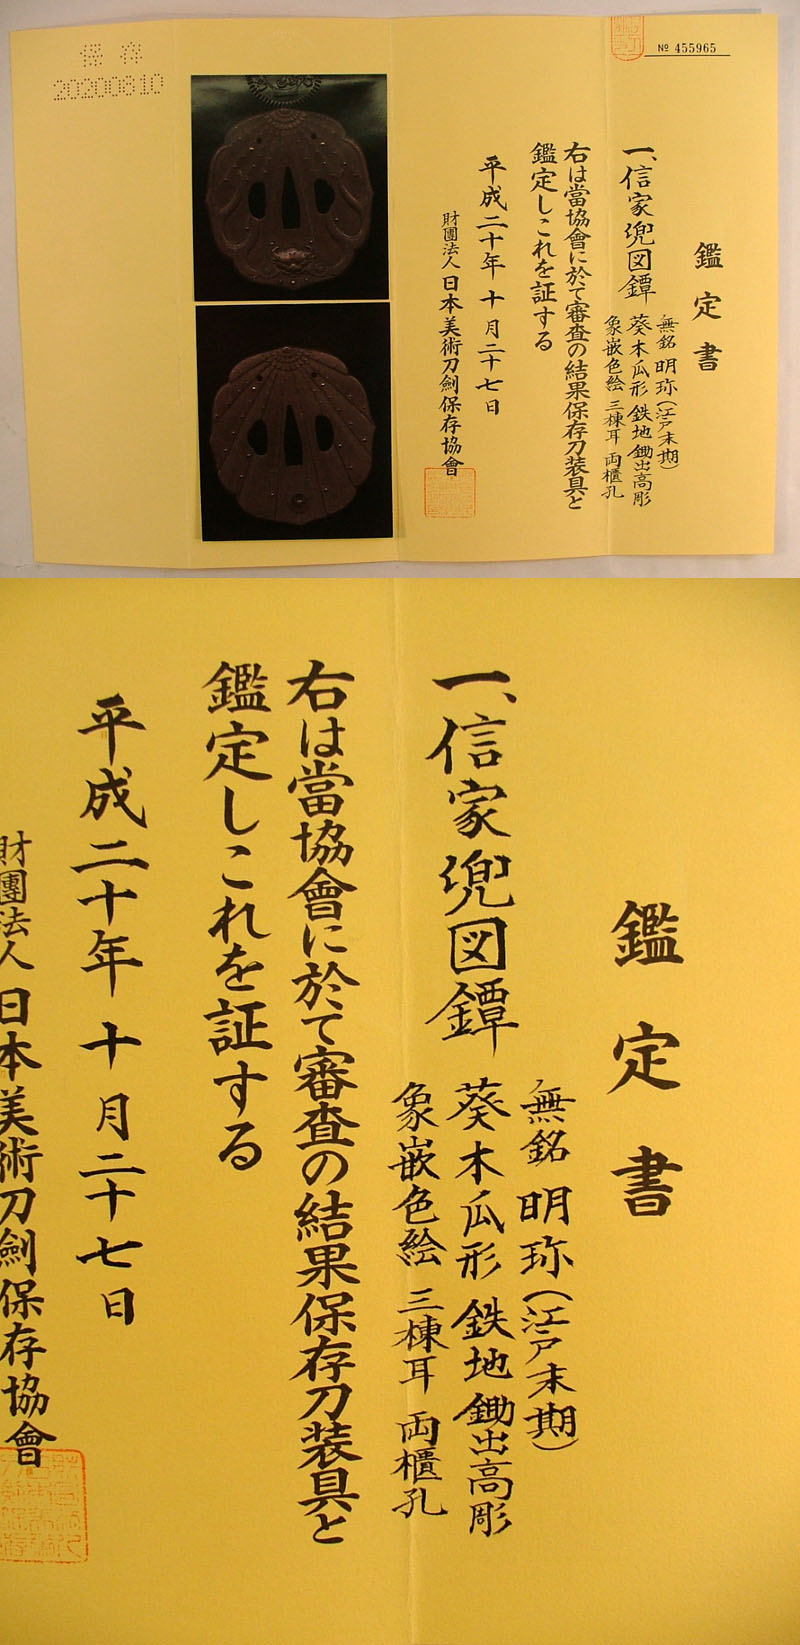 保存
20200810
№ 455965
鑑定書
一、信家兜図鐔
無銘 明珎(江戸末期)
葵木瓜形 鉄地 鋤出高彫
象嵌色絵 三棟耳 両櫃孔
右は當協會に於て審査の結果保存刀装具と
鑑定しこれを証する
平成二十年 十月二十七日
財團法人 日本美術刀劍保存協會
鑑定書
一、信家兜図鐔
無銘 明珎(江戸末期)
葵木瓜形 鉄地 鋤出高彫
象嵌色絵 三棟耳 両櫃孔
右は當協會に於て審査の結果保存刀装具と
鑑定しこれを証する
平成二十年 十月二十七日
財團法人 日本美術刀劍保存協會